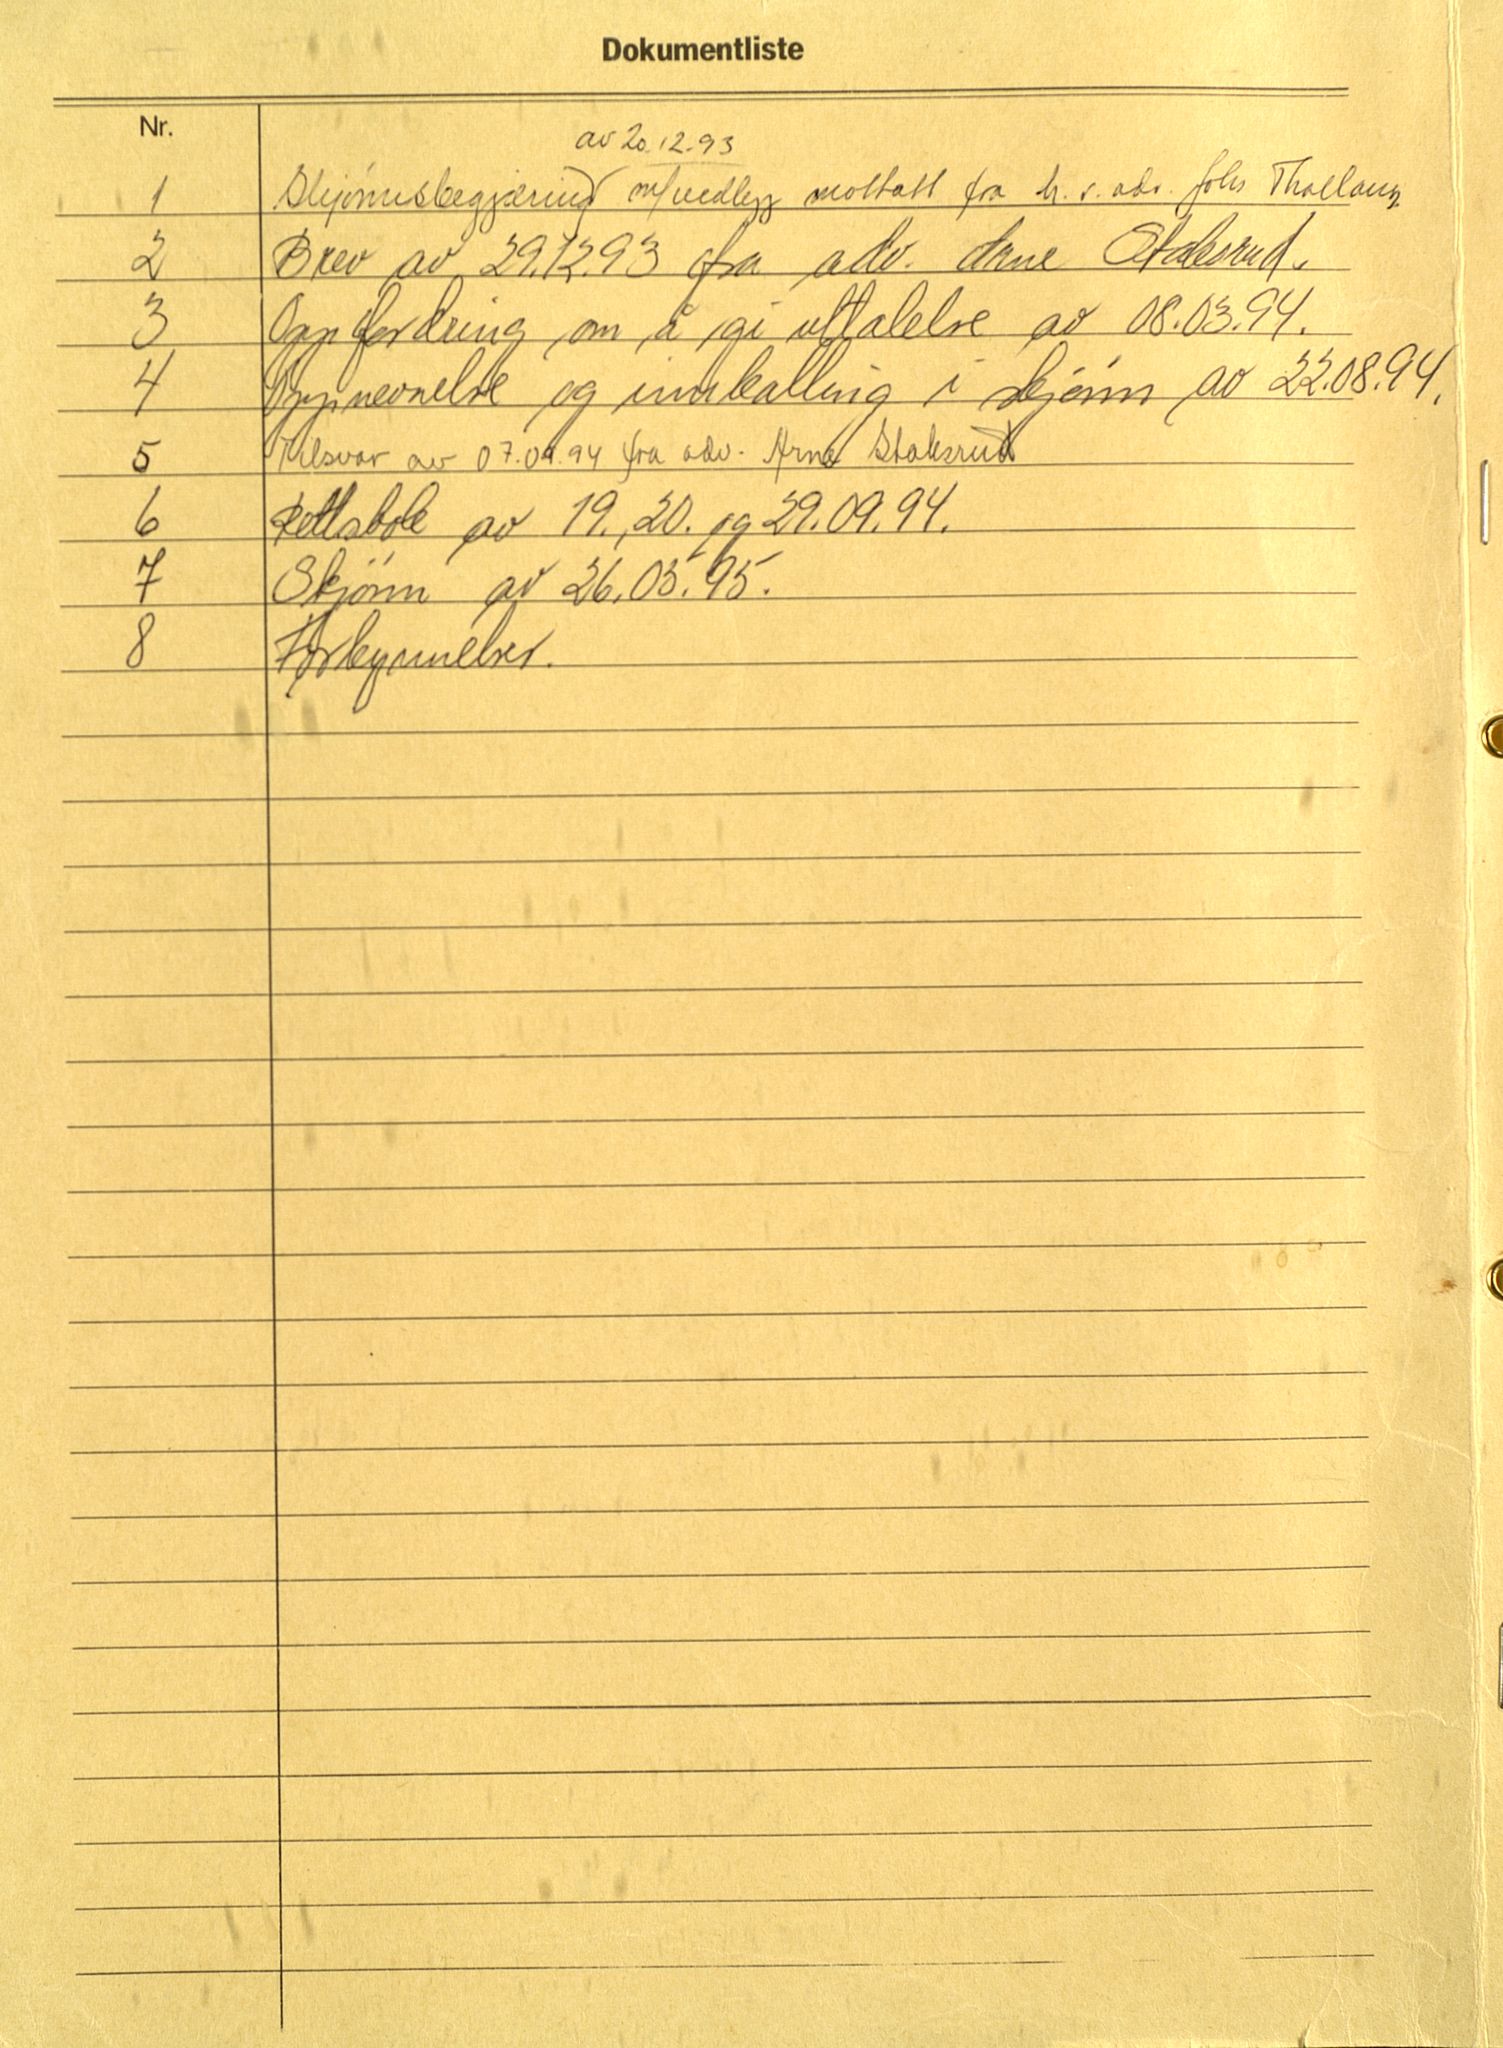 Dokumentliste
Nr.
av 20.12.93
1 Skjønnsbegjæring m/vedlegg mottatt fra h.r.adv. Johs Thallaug
2 Brev av 29.12.93 fra adv. Arne Staksrud.
3 Oppfordring om å gi uttalelse av 08.03.94.
4 Oppnevnelse og innkalling i skjønn av 22.08.94.
5 Tilsvar av 07.09.94 fra adv. Arne Staksrud
6 Rettsbok av 19., 20. og 29.09.94.
7 Skjønn av 26.05.95.
8 Forkynnelser.